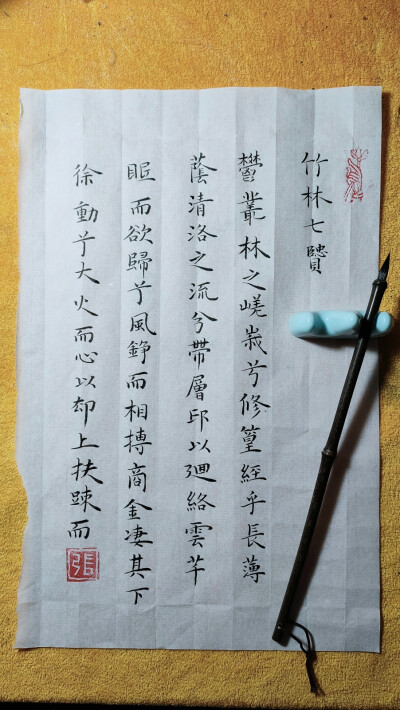 竹林七贒
鬱叢林之嵯峩兮修篁經乎長薄
蔭清洛之流兮帶層邱以廻絡雲芊
眠而欲歸兮風錚而相摶商金凄其下
徐動兮大火而心以却上扶踈而
張